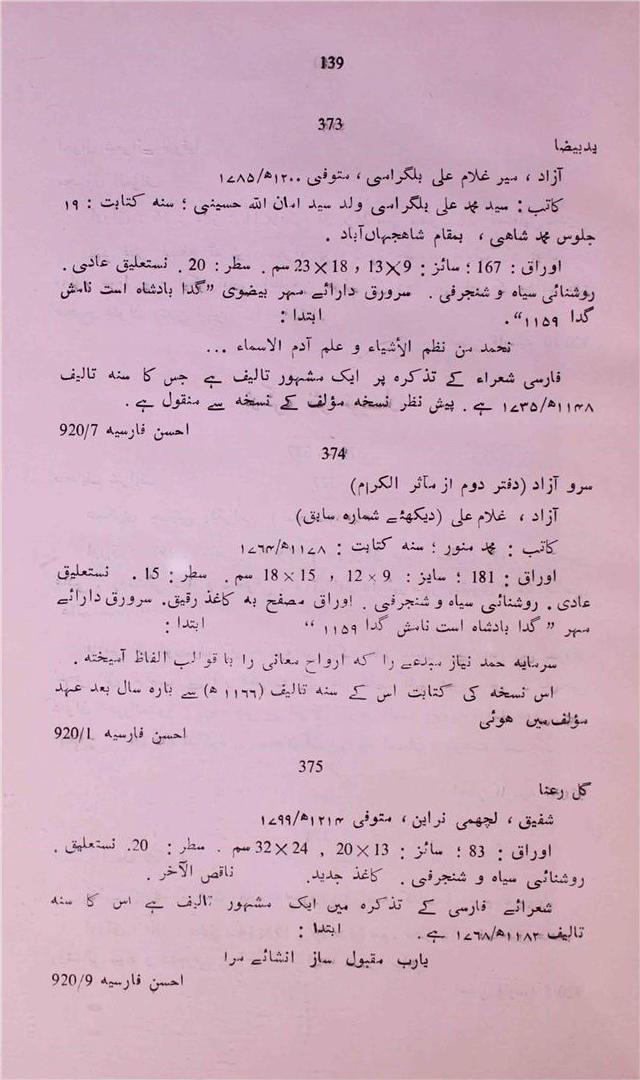 139
373
یدبیضا
آزاد ، میر غلام علی بلگرامی ، متوفی ۱۲۰۰ھ/۱۷۸۵
کاتب : سید محمد علی بلگرامی ولد سید امان اللہ حسینی ؛ سنہ کتابت : ۱۹
جلوس محمد شاهی ، بمقام شاهجہاں‌آباد .
اوراق : 167 ؛ سائز : 9×13 , 18×23 سم . سطر : 20 . نستعلیق عادی .
روشنائی سیاہ و شنجرفی . سرورق دارائے مہر بیضوی ”گدا بادشاہ است نامش
گدا ۱۱۵۹“ . ابتدا :
نحمد من نظم الأشیاء و علم آدم الاسماء ...
فارسی شعراء کے تذکرہ پر ایک مشہور تالیف ہے جس کا سنہ تالیف
۱۱۴۸ھ/۱۷۳۵ ہے . پیش نظر نسخہ مؤلف کے نسخہ سے منقول ہے .
احسن فارسیہ 920/7
374
سرو آزاد (دفتر دوم از مآثر الکرام)
آزاد ، غلام علی (دیکھئے شمارہ سابق)
کاتب : محمد منور ؛ سنہ کتابت : ۱۱۷۸ھ/۱۷۶۴
اوراق : 181 ؛ سایز : 9 × 12 , 15 × 18 سم . سطر : 15 . نستعلیق
عادی . روشنائی سیاہ و شنجرفی . اوراق مصفح بہ کاغذ رقیق. سرورق دارائے
مہر ” گدا بادشاہ است نامش گدا ۱۱۵۹ “ ابتدا :
سرمایہ حمد نیاز مبدعے را کہ ارواح معانی را با قوالب الفاظ آمیختہ .
اس نسخہ کی کتابت اس کے سنہ تالیف (۱۱۶۶ ھ) سے بارہ سال بعد عہد
مؤلف میں ہوئی
احسن فارسیہ 920/1
375
گل رعنا
شفیق ، لچھمی نراین ، متوفی ۱۲۱۴ھ/۱۷۹۹
اوراق : 83 ؛ سائز : 13×20 , 24×32 سم . سطر : 20. نستعلیق .
روشنائی سیاہ و شنجرفی . کاغذ جدید. ناقص الآخر .
شعرائے فارسی کے تذکرہ میں ایک مشہور تالیف ہے اس کا سنہ
تالیف ۱۱۸۲ھ/۱۷۶۸ ہے . ابتدا :
یارب مقبول ساز انشائے مرا
احسن فارسیہ 920/9